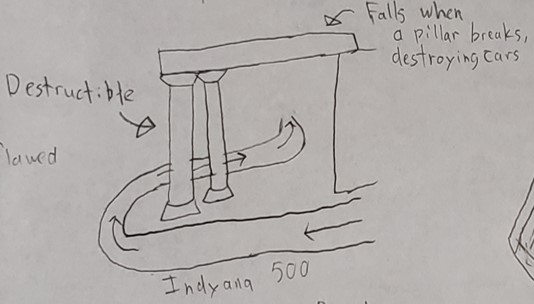 Falls when
a pillar breaks,
destroying cars
Destructible
Indyana 500